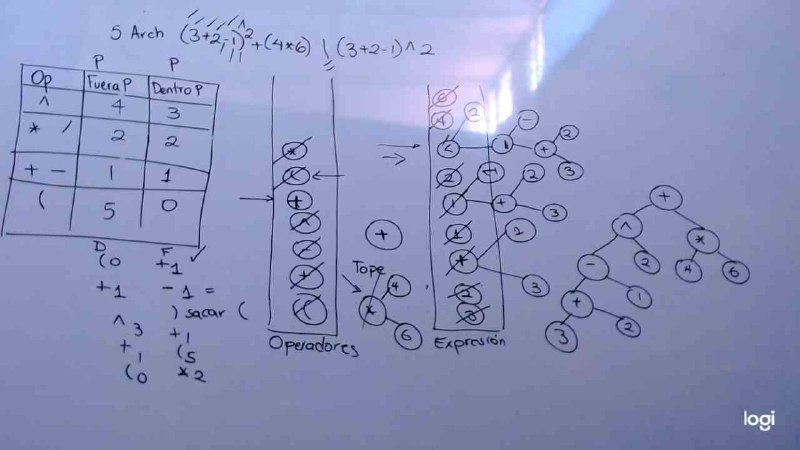 5 Arch (3+2-1)^2+(4*6) | (3+2-1)^2
P P
Op Fuera P Dentro P
^ 4 3
* / 2 2
+ - 1 1
( 5 0
D F
(0 +1 ✓
+1 -1 =
) sacar (
^3 +1
+1 (5
(0 *2
*
(
+
^
-
+
(
Operadores
+
Tope
* 4 6
6
4
^ 2 - 1 + 2 3
2
1
+
2
3
Expresión
+
^ *
- 2 4 6
+ 1
3 2
logi